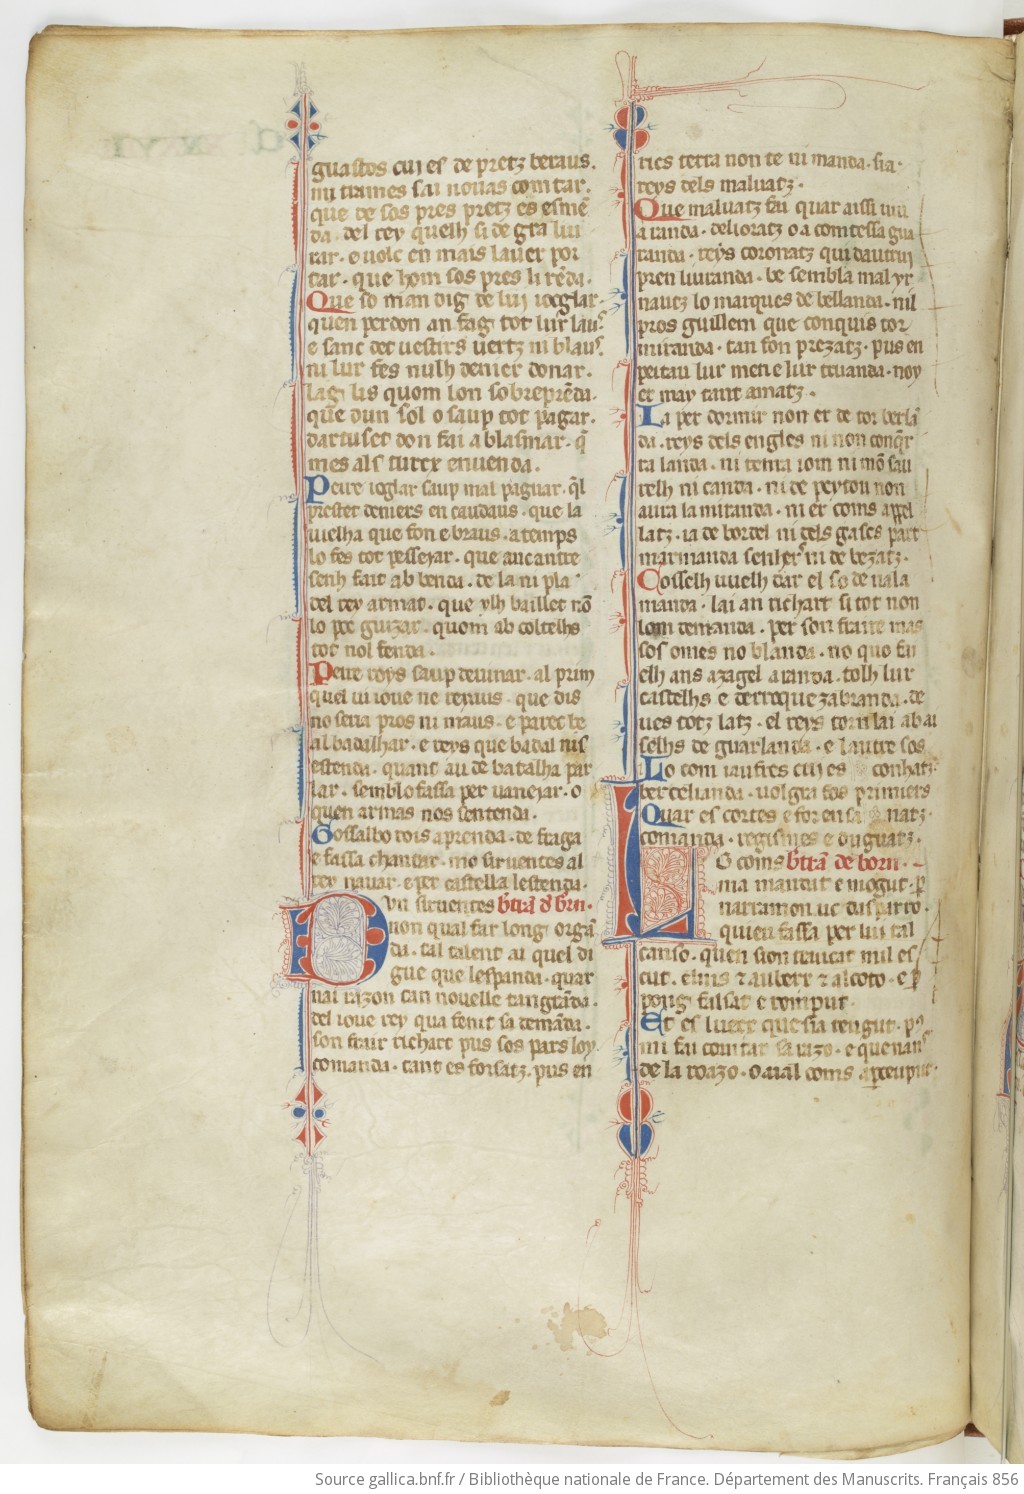 guastos cui es de pretz beraus.
mi trames sai nouas comtar.
que de sos pres pretz es esme
da. del rey quelh si de gra liu
rar. o uolc en mais lauer por
tar. que hom sos pres li rēda.
Que so man dig de lui ioglar.
quen perdon an fag tot lur
e sanc det uestirs uertz ni blaus.
ni lur fes nulh denier donar.
lag lis quom lon sobreprēda.
que dun sol o saup tot pagar.
dartuset don fai a blasmar. q̄
mes als turcx en uenda.
Peire ioglar saup mal paguar. q̄l
prestet deniers en caudaus. que la
uielha que fon ebraus. a temps
lo fes tot pesseyar. que anc antre
senh fait ab benda. de la ni pla
del rey armat. que ylh baillet nō
lo poc guizar. quom ab coltelhs
tot nol fenda.
Peire roys saup deuinar. al prim
quel ui ioue ne reyus. que dis
no seria pros ni maus. e parec be
al badalhar. e reys que badal nis
estenda. quant au de batalha par
lar. semblo fassa per uaneyar. o
quen armas nos sentenda.
Gossalbo rois aprenda. de fraga
e fassa chantar. mo siruentes al
rey nauar. e per castella lestenda.
Un siruentes b'trā d' b'rn.
non qual far longi orgā
da. tal talent ai quel di
gue que lespanda. quar
nai razon tan nouelle tan grāda.
del ioue rey qua fenit sa demāda.
son frair richart pus sos pars loy
comanda. tant es forsatz. pus en
rics terra non te ni manda. sia.
reys dels maluatz.
Que maluatz fai quar aissi uiu
a randa. delioratz o a comtessa gua
randa. reys coronatz qui dautrui
pren liuranda. be sembla mal yr
nautz lo marques de bellanda. nil
pros guillem que conquis tor
miranda. tan fon prezatz. pus en
peitau lur men e lur truanda. noy
er may tant amatz.
La per dormir non er de cor berlā
da. reys dels engles ni non conq̄r
ra landa. ni tenra iom ni mō sau
relh ni canda. ni de peytou non
aura la miranda. ni er coms appel
latz. ia de bordel ni dels gascs part
marmanda senher ni de bezatz.
Cosselh uuelh dar el so de nala
manda. lai an richart si tot non
lom demanda. per son fraire mas
sos omes no blanda. no quo fai
elh ans azagel a randa. tolh lur
castelhs e derroque e zabranda. de
ues totz latz. el reys torn lai ab ai
selhs de guarlanda. e lautre sos
Lo com iaufres cui es conhatz.
bercelianda. uolgra fos primiers
Quar es cortes e foren sa natz.
comanda. regismes e duguatz.
Lo coms b'trā de born.
ma mandat e mogut. p̄
narramon uc dasparro.
quieu fassa per lui tal
canso. quen sion traucat mil es
cut. elms et ausberc et alcoto. e p̄
pong falsat e romput.
Et es luecx que sia tengut. pº
mi fai comtar sa razo. e que nan
de la razo. o aial coms aperceuput.
Source gallica.bnf.fr / Bibliothèque nationale de France. Département des Manuscrits. Français 856